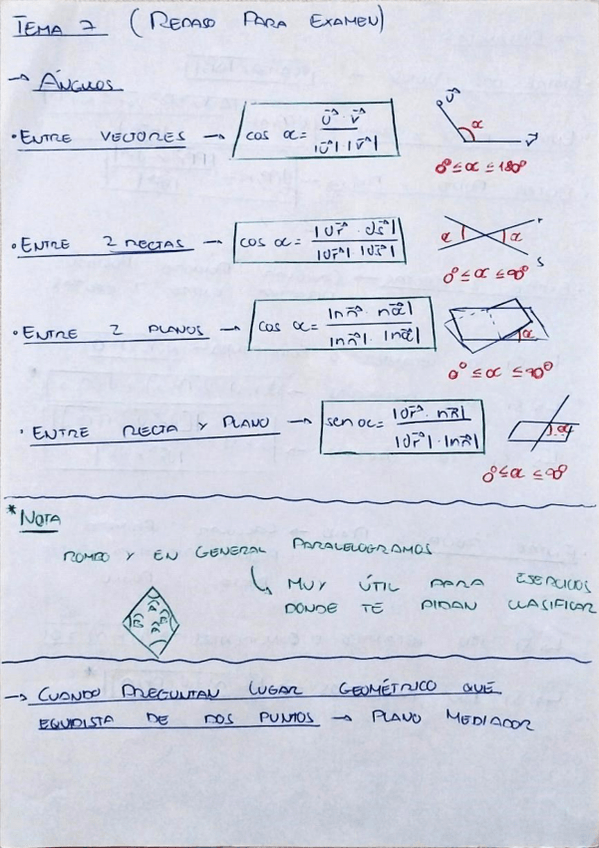 TEMA 7 (REPASO PARA EXAMEN)
→ ÁNGULOS
• ENTRE VECTORES → cos α = u⃗ · v⃗ / |u⃗| · |v⃗|
u⃗ α v⃗
0° ≤ α ≤ 180°
• ENTRE 2 RECTAS → cos α = |dr⃗ · ds⃗| / |dr⃗| · |ds⃗|
α α r s
0° ≤ α ≤ 90°
• ENTRE 2 PLANOS → cos α = |nπ⃗ · nα⃗| / |nπ⃗| · |nα⃗|
α
0° ≤ α ≤ 90°
• ENTRE RECTA Y PLANO → sen α = |dr⃗ · nπ⃗| / |dr⃗| · |nπ⃗|
α
0° ≤ α ≤ 90°
* NOTA
ROMBO Y EN GENERAL PARALELOGRAMOS
↳ MUY ÚTIL PARA EJERCICIOS
DONDE TE PIDAN CLASIFICAR
A B B A
→ CUANDO PREGUNTAN LUGAR GEOMÉTRICO QUE
EQUIDISTA DE DOS PUNTOS → PLANO MEDIADOR